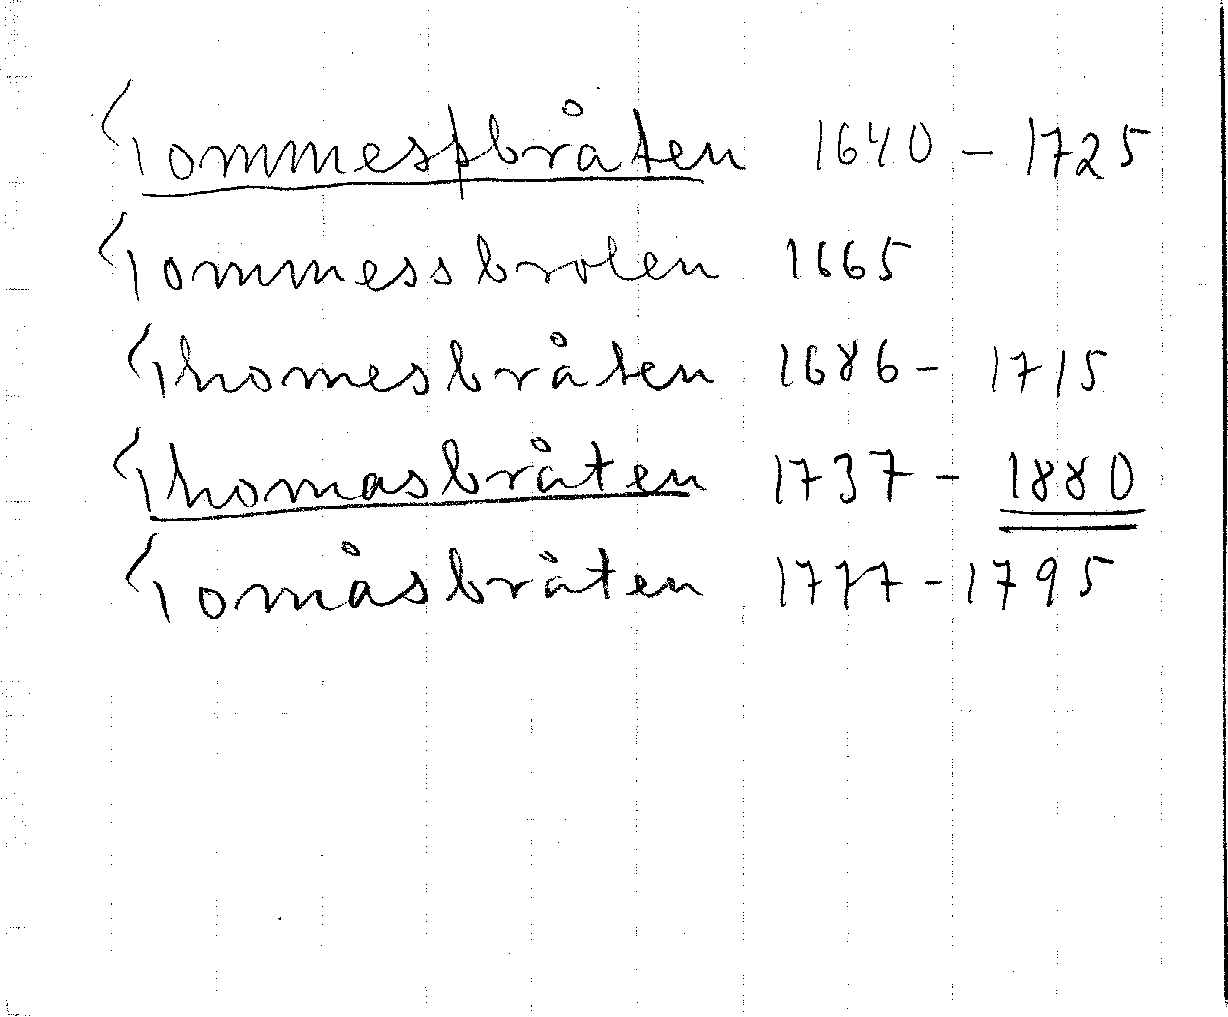 Tommesbråten 1640 - 1725
Tommessbrolen 1665
Thomesbråten 1686 - 1715
Thomasbråten 1737 - 1880
Tomåsbråten 1777 - 1795